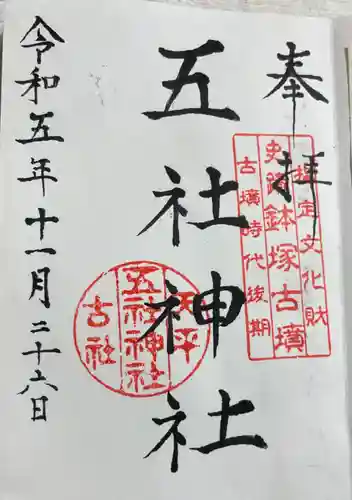 奉拝
指定文化財
史蹟鉢塚古墳
古墳時代後期
五社神社
天平
五社神社
古社
令和五年十一月二十六日